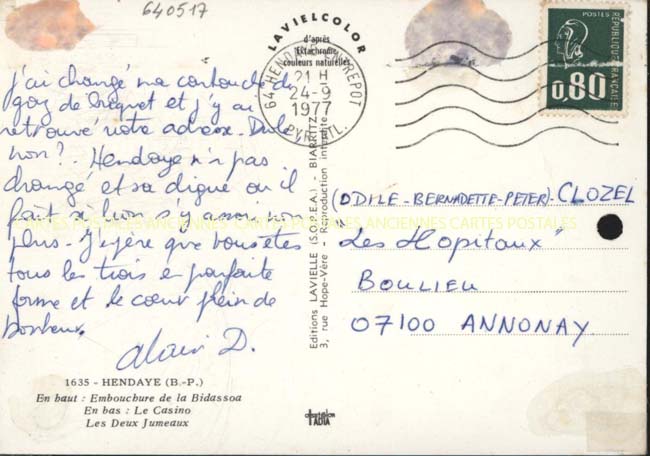 640517
LAVIELCOLOR
d'après
Ektachrome
couleurs naturelles
64 HENDAYE ENTREPOT
21 H
24-9
1977
PYR. ATL.
POSTES
RÉPUBLIQUE FRANÇAISE
0,80
j'ai changé ma cartouche de
gaz de briquet et j'y ai
retrouvé votre adresse. Drôle,
non ?. Hendaye n'a pas
changé et sa digue où il
fait si bon s'y assoir non
plus. J'espère que vous êtes
tous les trois en parfaite
forme et le cœur plein de
bonheur.
Alain D.
(ODILE-BERNADETTE-PETER)-CLOZEL
"Les Hopitaux"
BOULIEU
07100 ANNONAY
CARTES POSTALES ANCIENNES CARTES POSTALES ANCIENNES CARTES POSTALES
Editions LAVIELLE (S.O.P.E.A.) - BIARRITZ
3, rue Hope-Vère - Reproduction interdite
1635 - HENDAYE (B.-P.)
En haut : Embouchure de la Bidassoa
En bas : Le Casino
Les Deux Jumeaux